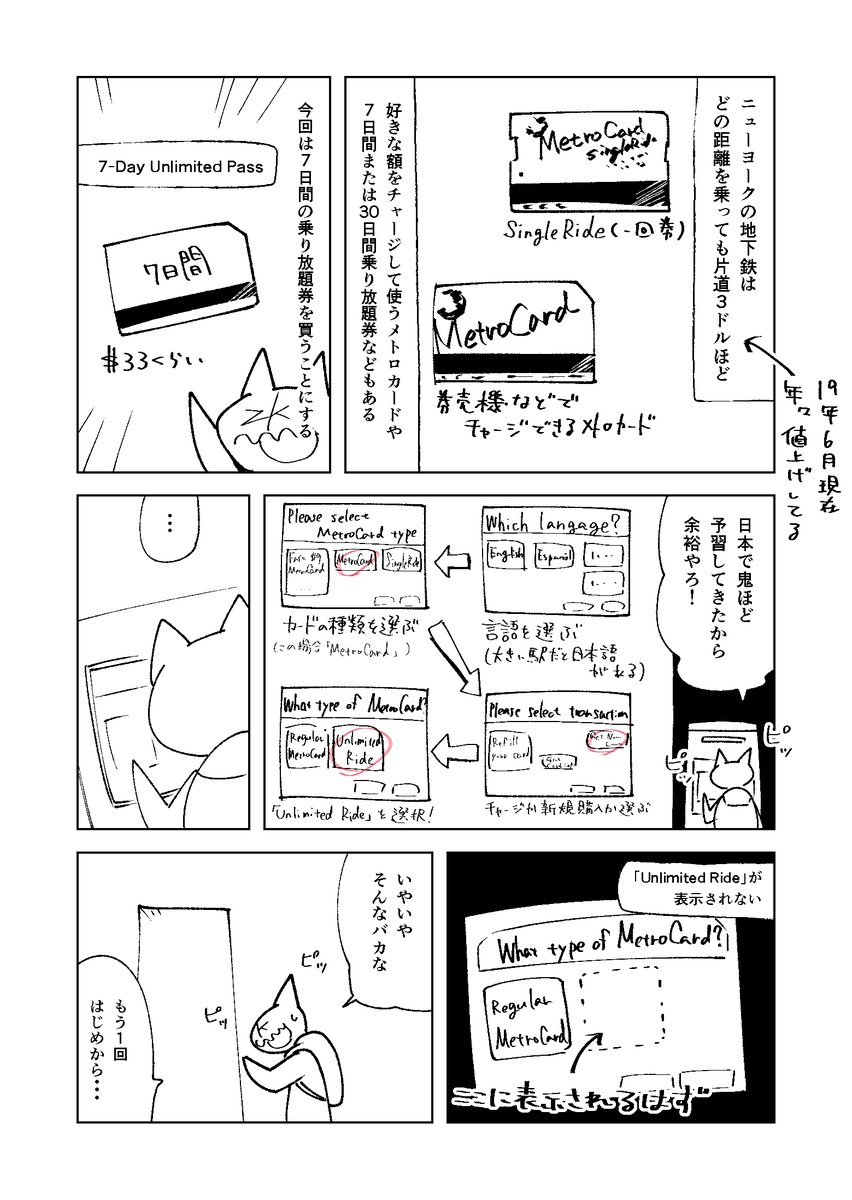 ニューヨークの地下鉄は
どの距離を乗っても片道3ドルほど
19年6月現在
年々値上げしてる
MetroCard
SingleRide
SingleRide(一回券)
MetroCard
券売機などで
チャージできるメトロカード
好きな額をチャージして使うメトロカードや
7日間または30日間乗り放題券などもある
今回は7日間の乗り放題券を買うことにする
7-Day Unlimited Pass
7日間
$33くらい
日本で鬼ほど
予習してきたから
余裕やろ!
ピッ
ピッ
Which langage?
English
Español
言語を選ぶ
(大きい駅だと日本語
がある)
Please select
MetroCard type
MetroCard
SingleRide
カードの種類を選ぶ
(この場合「MetroCard」)
Please select transaction
Refill
your card
チャージか新規購入か選ぶ
What type of MetroCard?
Regular
MetroCard
Unlimited
Ride
「Unlimited Ride」を選択!
…
「Unlimited Ride」が
表示されない
What type of MetroCard?
Regular
MetroCard
ここに表示されるはず
いやいや
そんなバカな
ピッ
ピッ
もう1回
はじめから・・・